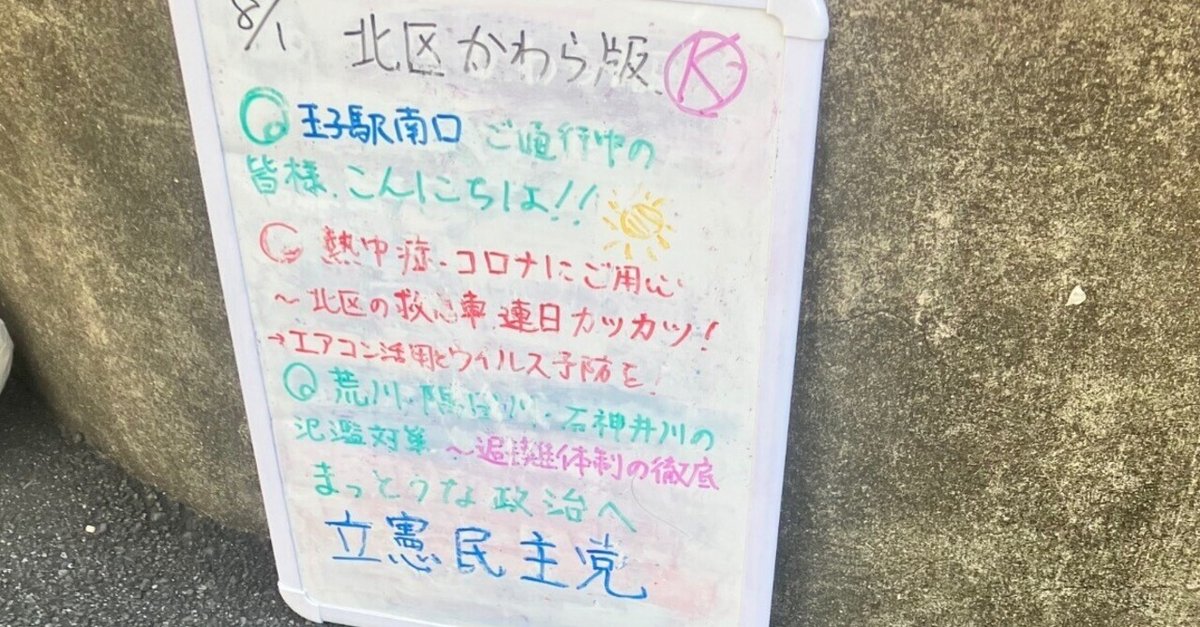 8/1 北区かわら版 K
王子駅南口 ご通行中の
皆様、こんにちは!!
熱中症・コロナにご用心
〜北区の救急車 連日カツカツ!
→エアコン活用とウイルス予防を!
荒川・隅田川・石神井川の
氾濫対策 〜避難体制の徹底
まっとうな政治へ
立憲民主党